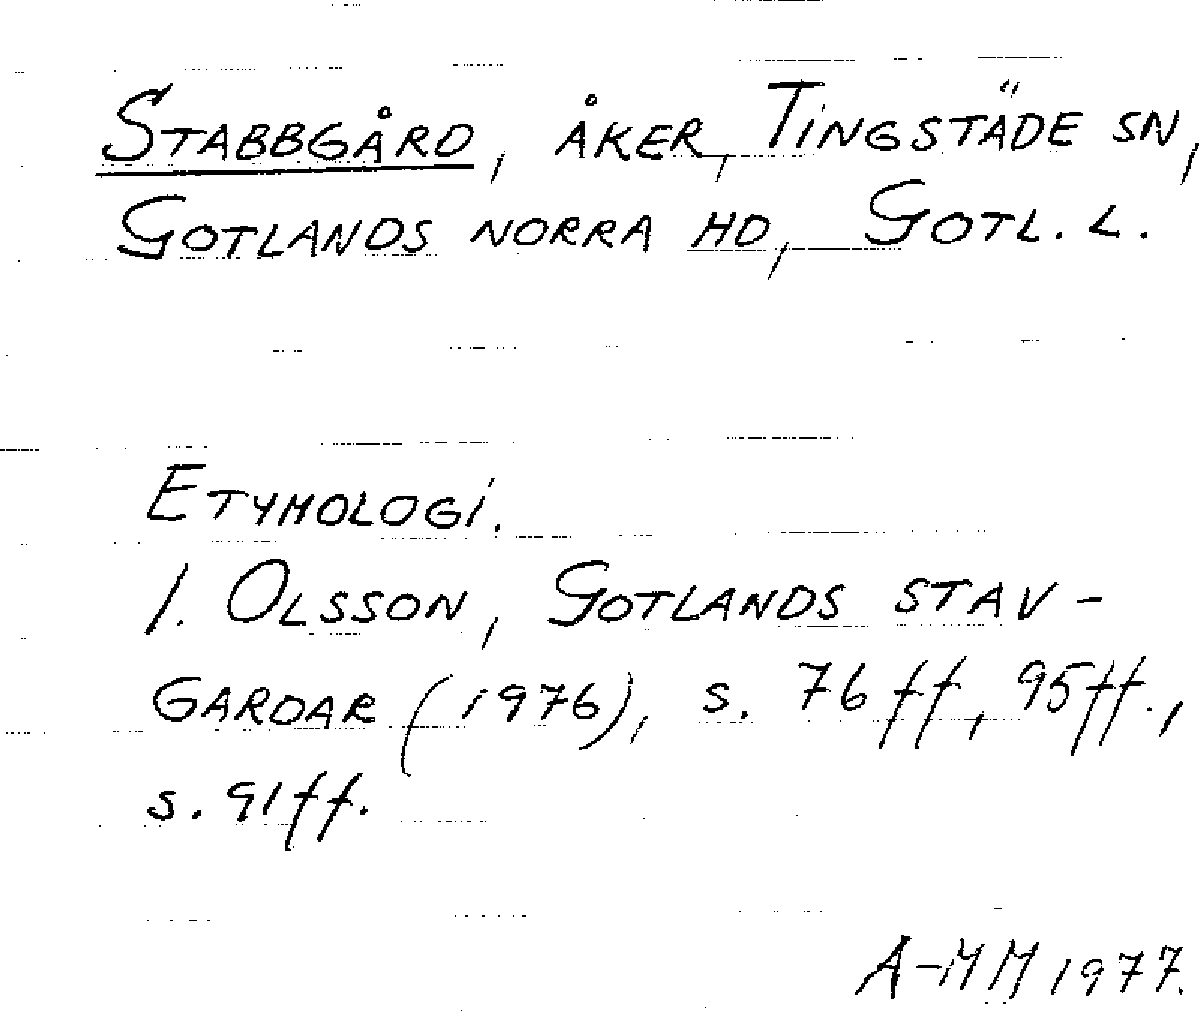 STABBGÅRD, ÅKER, TINGSTÄDE SN,
GOTLANDS NORRA HD, GOTL. L.
ETYMOLOGI.
I. OLSSON, GOTLANDS STAV-
GARDAR (1976), s. 76 ff, 95 ff.,
s. 91 ff.
A-MM 1977.